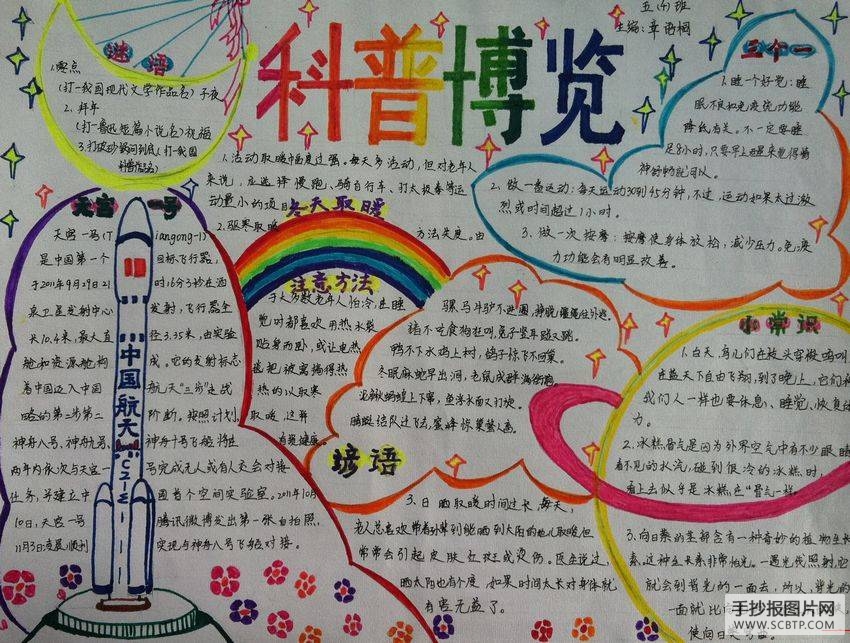 科普博览
五(4)班
主编:章语桐
谜语
1.零点
(打一我国现代文学作品名)子夜
2.拜年
(打一鲁迅短篇小说名)祝福
3.打破砂锅问到底(打一我国
科普作品名)
三个一
1.睡一个好觉:睡
眠不良和免疫功能
降低有关。不一定要睡
足8小时,只要早上醒来觉得精
神舒畅就可以。
2.做一些运动:每天运动30到45分钟,不过,运动如果太过激
烈或时间超过1小时。
3.做一次按摩:按摩使身体放松,减少压力。免疫
力功能会有明显改善。
1.活动取暖幅度过强。每天多活动,但对老年人
来说,应选择慢跑、骑自行车、打太极拳等运
动量小的项目
冬天取暖
2.驱寒取暖 方法失度。由
注意方法
于大多数老年人怕冷,在睡
觉时都喜欢用热水袋
贴身而卧,或让电热
毯把被窝捂得热
热的以取寒
取暖,这样
有损健康。
天宫一号
天宫一号(Tiangong-1)
是中国第一个目标飞行器,
于2011年9月29日21时16分3秒在酒
泉卫星发射中心发射,飞行器全
长10.4米,最大直径3.35米,由实验
舱和资源舱构成。它的发射标志
着中国迈入中国航天"三步走"战
略的第二步第二阶段。按照计划,
神舟八号、神舟九号、神舟十号飞船将在
两年内依次与天宫一号完成无人或有人交会对接
任务,并建立中国首个空间实验室。2011年10月
10日,天宫一号腾讯微博发出第一张自拍照,
11月3日凌晨顺利实现与神舟八号飞船对接。
中国航天
CZ-2F
骡马牛驴不进圈,
猪不吃食狗狂叫,兔子竖耳蹦又跳。
鸭不下水鸡上树,鸽子惊飞不回巢。
冬眠麻蛇早出洞,老鼠成群满街跑
蜻蜓结队过飞去,蜜蜂惊巢蛰人逃。
谚语
3.日晒取暖时间过长。每天,
老人总喜欢带着孙辈到能晒到太阳的地儿取暖,但
常常会引起皮肤红斑或灼伤。医生说过,
晒太阳也有个度,如果时间太长对身体就
有害无益了。
小常识
1.白天,鸟儿们在枝头宛转鸣叫,
在蓝天下自由飞翔,到了晚上,它们和
我们人一样也要休息、睡觉,恢复体
力。
2.冰糕冒气是因为外界空气中有不少眼睛
看不见的水汽,碰到很冷的冰糕时,
看上去似乎是冰糕在"冒气"一样。
3.向日葵的茎部含有一种奇妙的植物生长
素,这种生长素非常怕光。一遇光线照射,它
就会到背光的一面去,所以,背光的
一面就比
使向日葵
手抄报图片网
WWW.SCBTP.COM